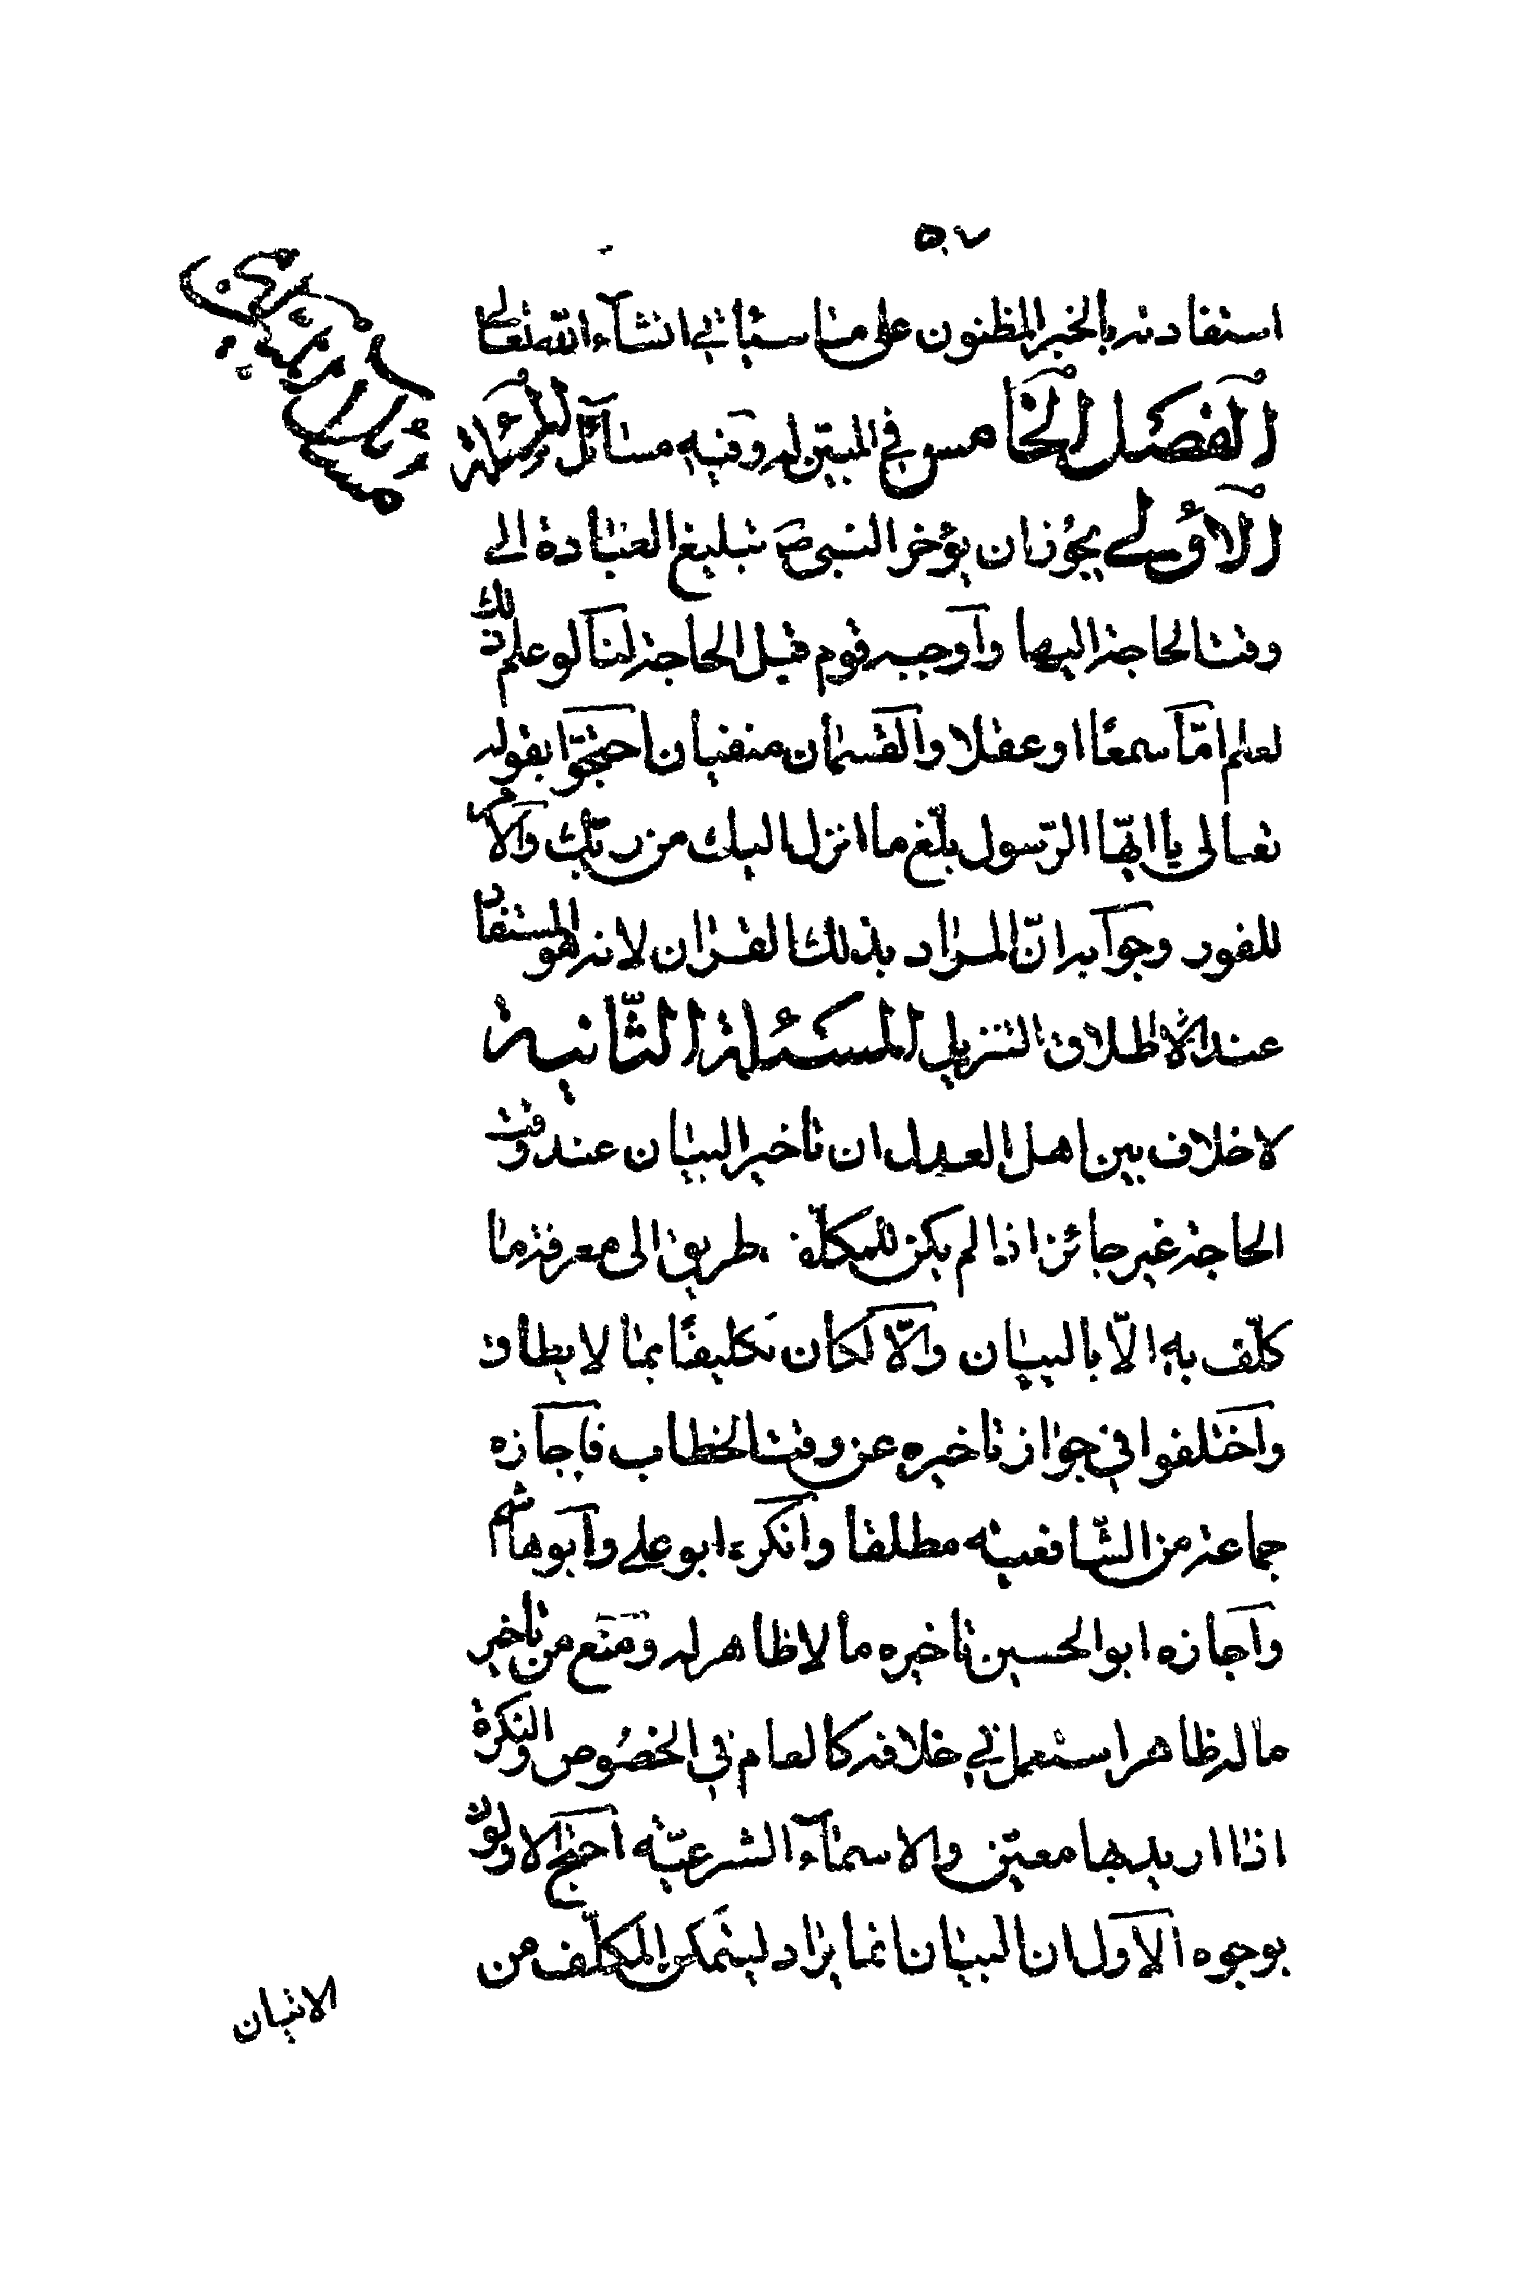 ٥٧
استفادته بالخبر المظنون على ما سيأتي انشآء الله تعالى
الفصل الخامس في المبيّن له وفيه مسائل المسئلة
الاولى يجوز ان يؤخر النبي ص تبليغ العبادة الى
وقت الحاجة اليها وأوجبه قوم قبل الحاجة لنا لو علم ذلك
لعلم امّا سمعًا او عقلا والقسمان منفيان احتجّوا بقوله
تعالى يا ايّها الرّسول بلّغ ما انزل اليك من ربّك والامر
للفور وجوابه انّ المراد بذلك القران لانه هو المستفاد
عند الاطلاق التنزيل المسئلة الثّانية
لا خلاف بين اهل العدل ان تأخير البيان عند وقت
الحاجة غير جائز اذا لم يكن للمكلّف طريق الى معرفة ما
كلّف به الّا بالبيان والّا لكان تكليفًا بما لا يطاق
واختلفوا في جواز تأخيره عن وقت الخطاب فأجازه
جماعة من الشّافعيّة مطلقا وانكره ابو علي وابو هاشم
واجازه ابو الحسين تأخيره ما لا ظاهر له ومنع من تأخير
ما له ظاهر استعمل في خلافه كالعام في الخصوص والنكرة
اذا اريد بها معيّن والاسمآء الشرعيّة احتج الاولون
بوجوه الاول ان البيان انما يراد ليتمكن المكلّف من
الاتيان